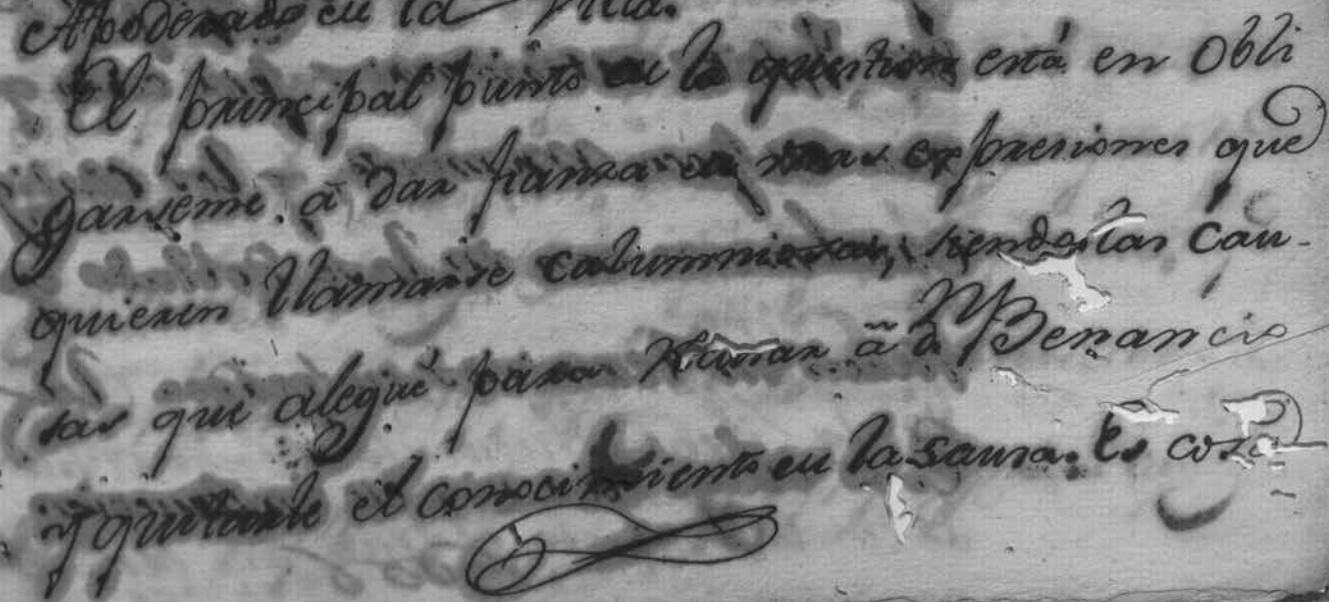 Apoderado en la Villa.
El principal punto en la question está en Obli
garseme, á dar fianza en unas expresiones que
quieren llamarse calumniosas, siendo las cau-
sas que alegué para á Dn Benancio
y quitarle el conocimiento en la causa. Es cosa